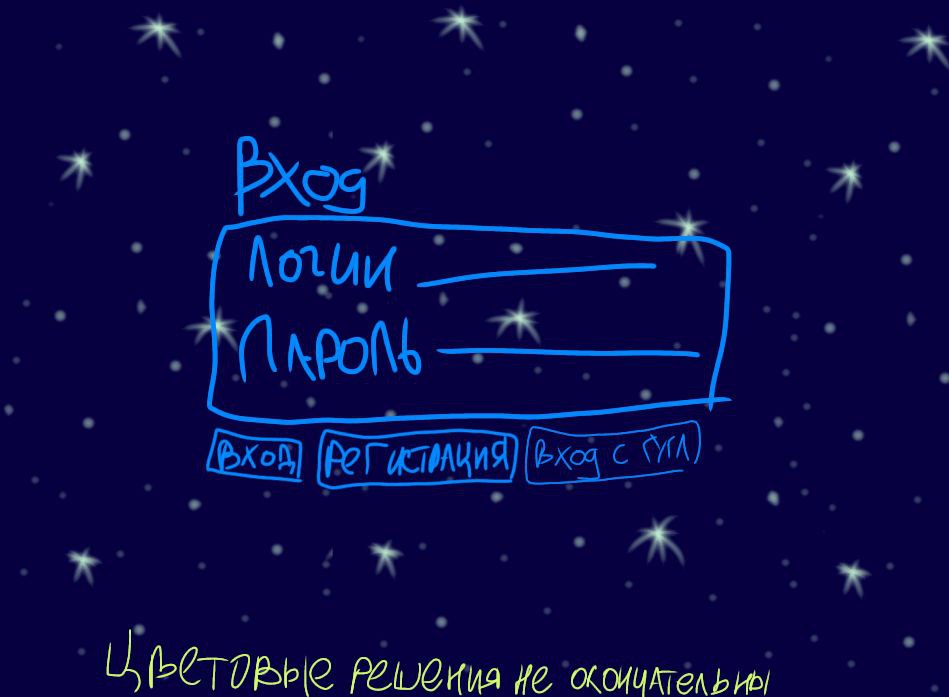 Вход
Логин
Пароль
Вход Регистрация Вход с гугл
Цветовые решения не окончательны